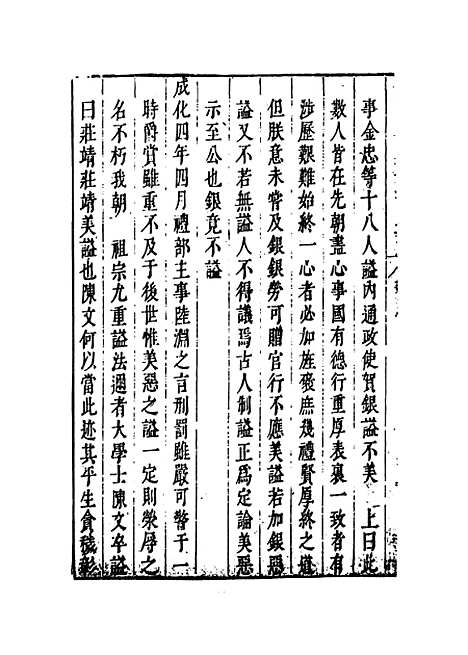 事金忠等十八人謚內通政使賀銀謚不美　上曰此
數人皆在先朝盡心事國有德行重厚表裏一致者有
涉歷艱難始終一心者必加旌褒庶幾禮賢厚終之道
但朕意未嘗及銀銀勞可贈官行不應美謚若加銀惡
謚又不若無謚人不得議焉古人制謚正爲定論美惡
示至公也銀竟不謚
成化四年四月禮部主事陸淵之言刑罰雖嚴可警于一
時爵賞雖重不及于後世惟美惡之謚一定則榮辱之
名不朽我朝　祖宗尤重謚法邇者大學士陳文卒謚
曰莊靖莊靖美謚也陳文何以當此迹其平生貪穢彰